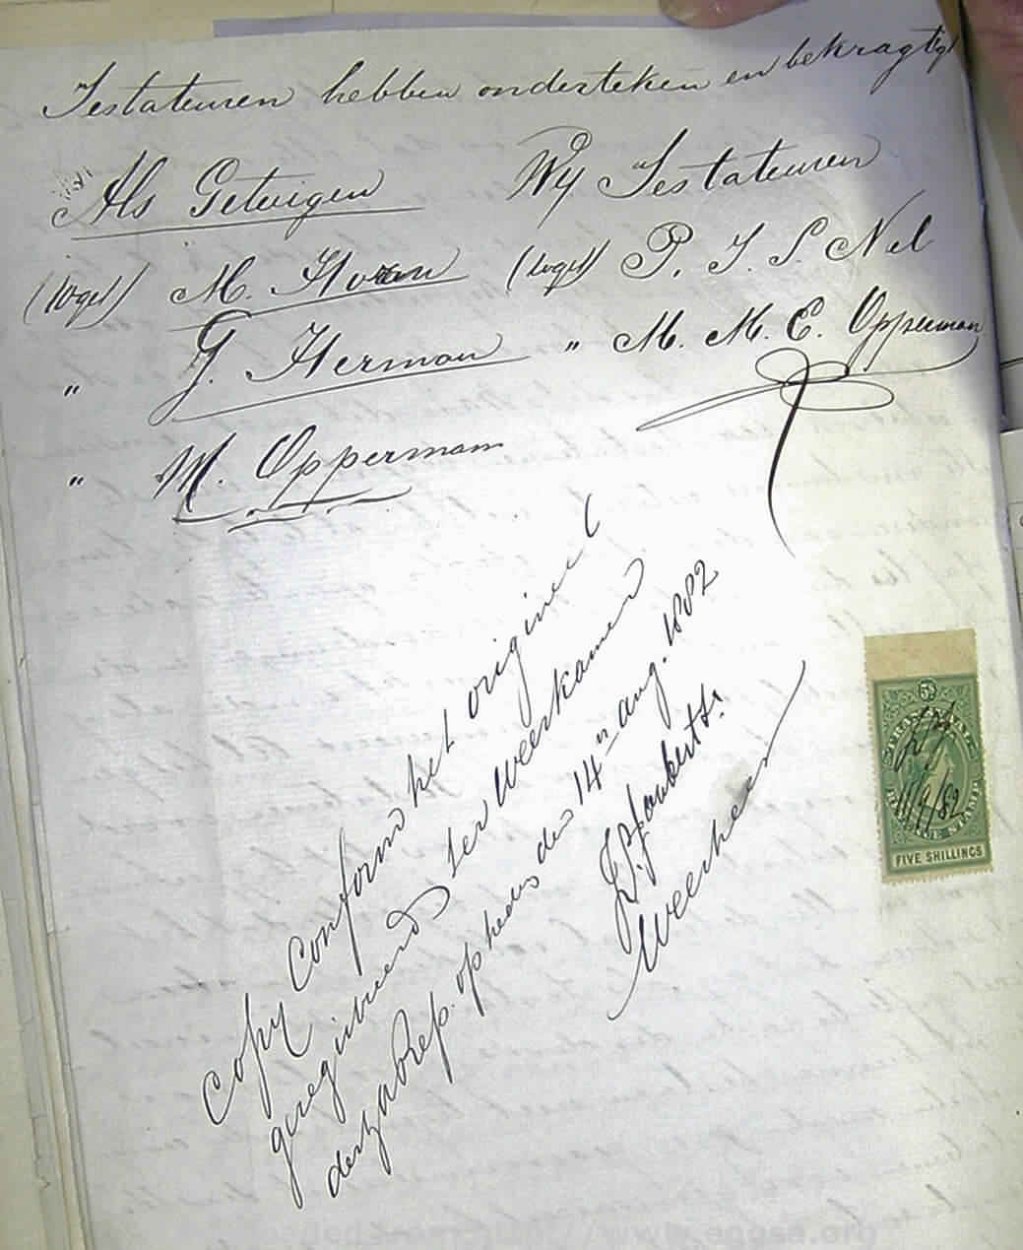 Testateuren hebben onderteken en bekragtig
Als Getuigen
Wij Testateuren
(wgt) M. Horan
(wgt) P. J. S. Nel
" J. Herman
" M. M. E. Opperman
" M. Opperman
Copy Conform het origineel
geregistreerd ter Weeskamer
dezer Rep. op heden den 14n Aug. 1882
Weesheer
5/
11/9/82
FIVE SHILLINGS
www.eggsa.org